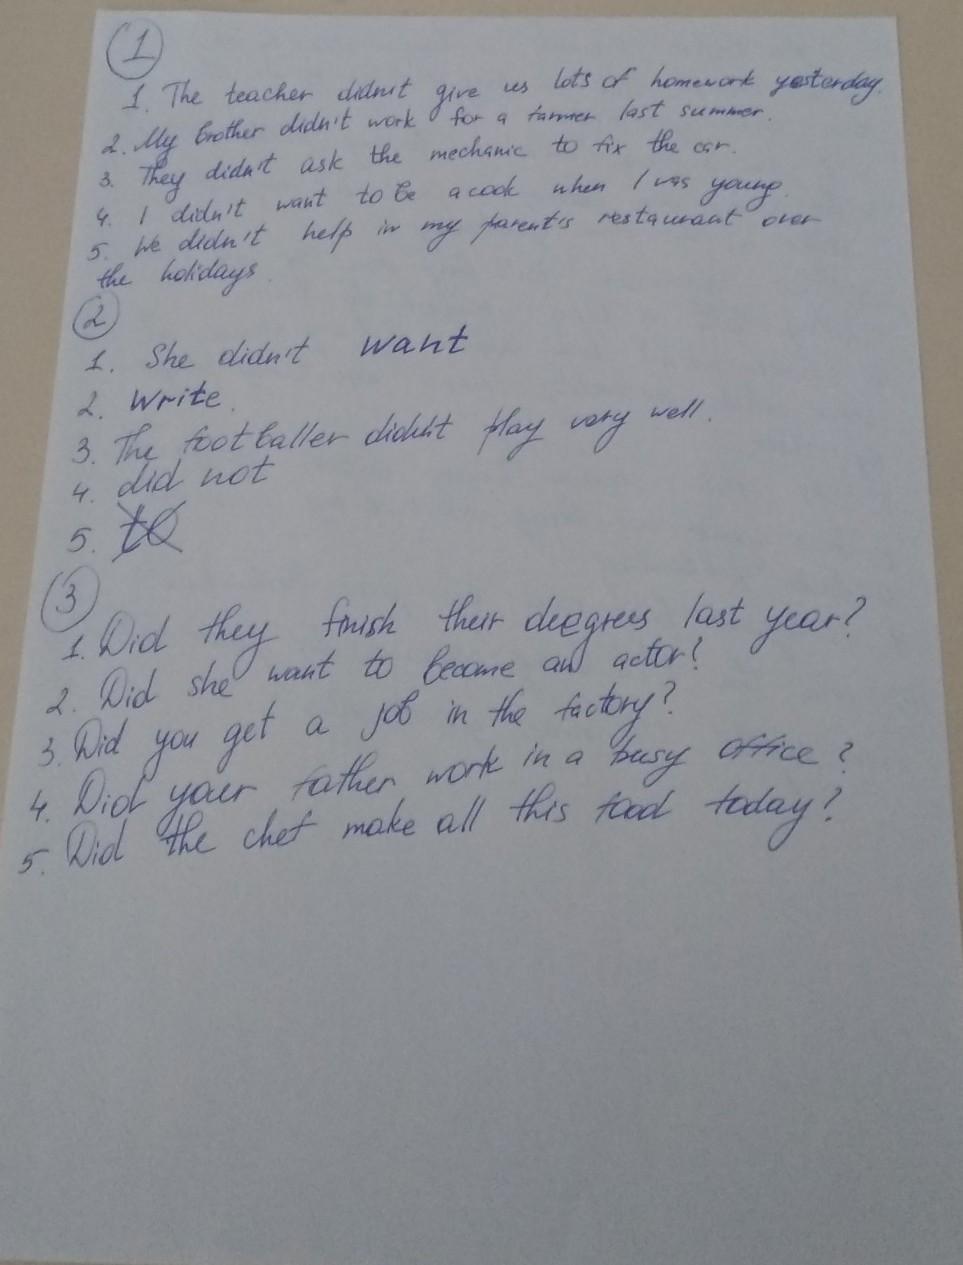 1
1. The teacher didn't give us lots of homework yesterday.
2. My brother didn't work for a farmer last summer.
3. They didn't ask the mechanic to fix the car.
4. I didn't want to be a cook when I was young.
5. We didn't help in my parent's restaurant over
the holidays.
2
1. She didn't want
2. Write.
3. The footballer didn't play very well.
4. did not
5. to
3
1. Did they finish their deegrees last year?
2. Did she want to become an actor?
3. Did you get a job in the factory?
4. Did your father work in a busy office?
5. Did the chef make all this food today?